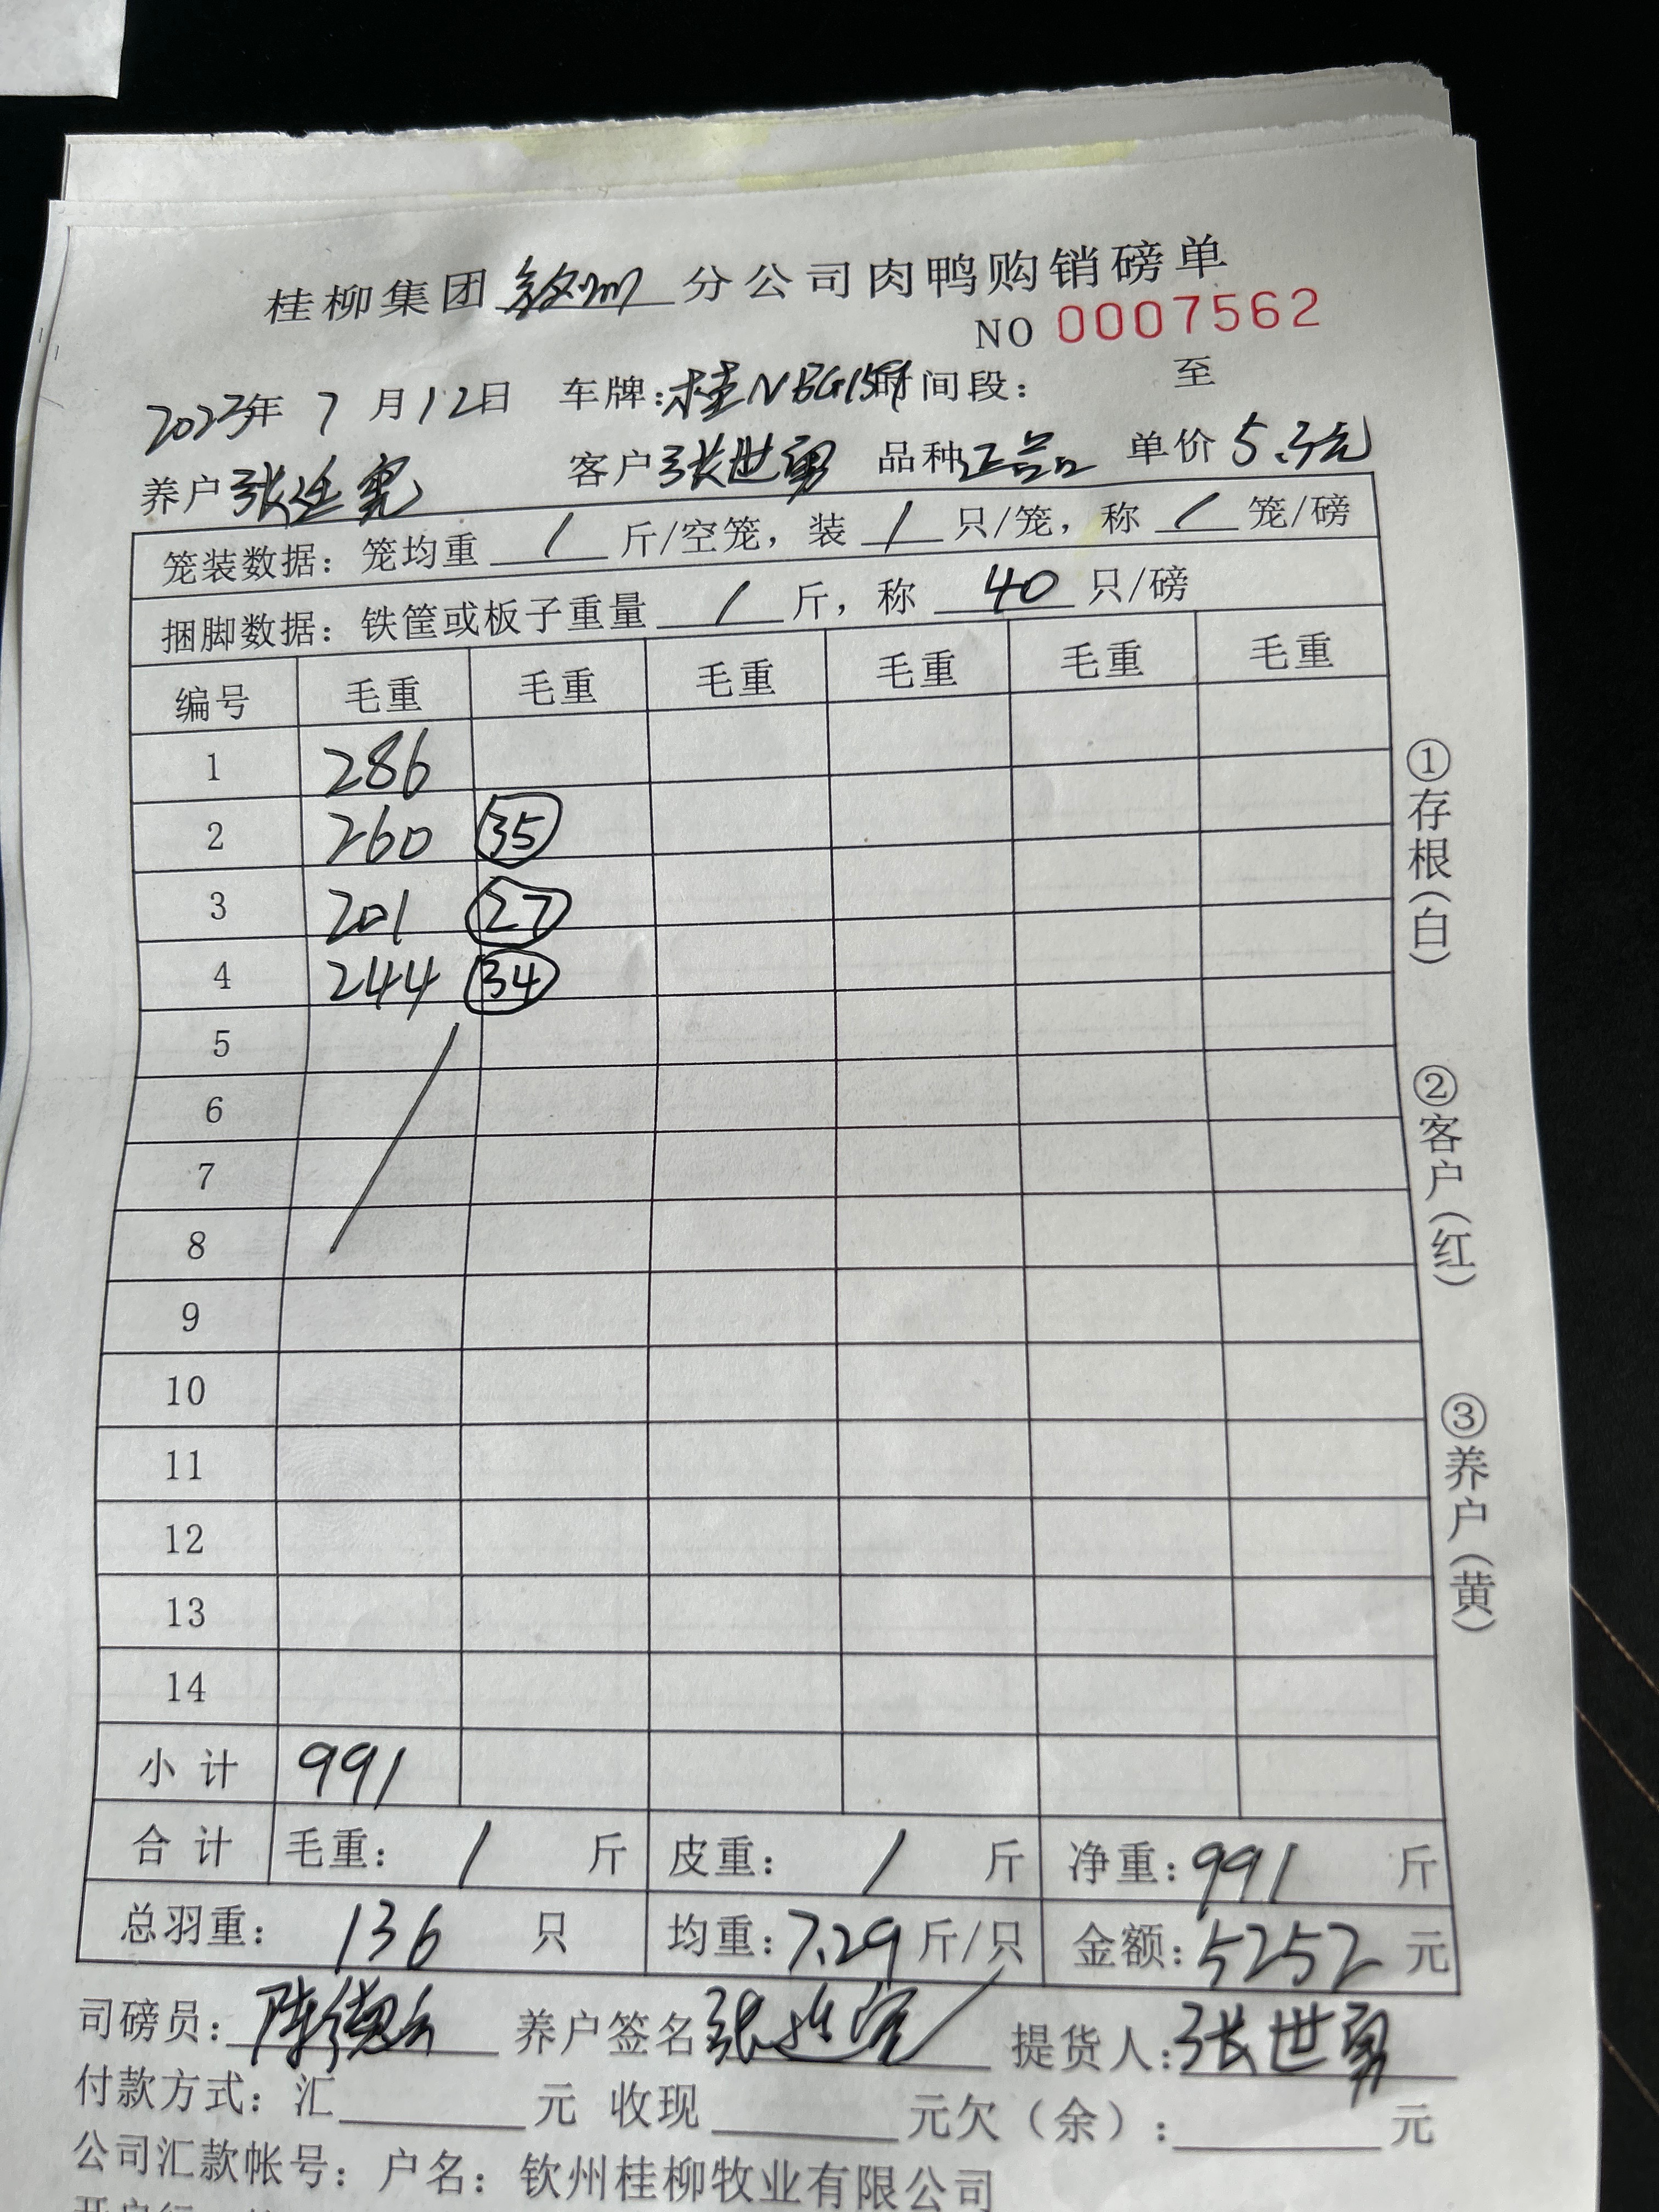 桂柳集团钦州分公司肉鸭购销磅单
NO 0007562
2023年 7月12日 车牌:桂N 时间段: 至
养户张廷 客户张世勇 品种正品 单价5.3元
笼装数据: 笼均重 / 斤/空笼, 装 / 只/笼, 称 / 笼/磅
捆脚数据: 铁筐或板子重量 / 斤, 称 40 只/磅
编号 毛重 毛重 毛重 毛重 毛重 毛重
1 286
2 260 35
3 201 27
4 244 34
5
6
7
8
9
10
11
12
13
14
小计 991
合计 毛重: / 斤 皮重: / 斤 净重: 991 斤
总羽重: 136 只 均重: 7.29 斤/只 金额: 5252 元
司磅员: 陈德 养户签名 张 提货人: 张世勇
付款方式: 汇 元 收现 元欠(余): 元
公司汇款帐号: 户名: 钦州桂柳牧业有限公司
①存根(白)
②客户(红)
③养户(黄)